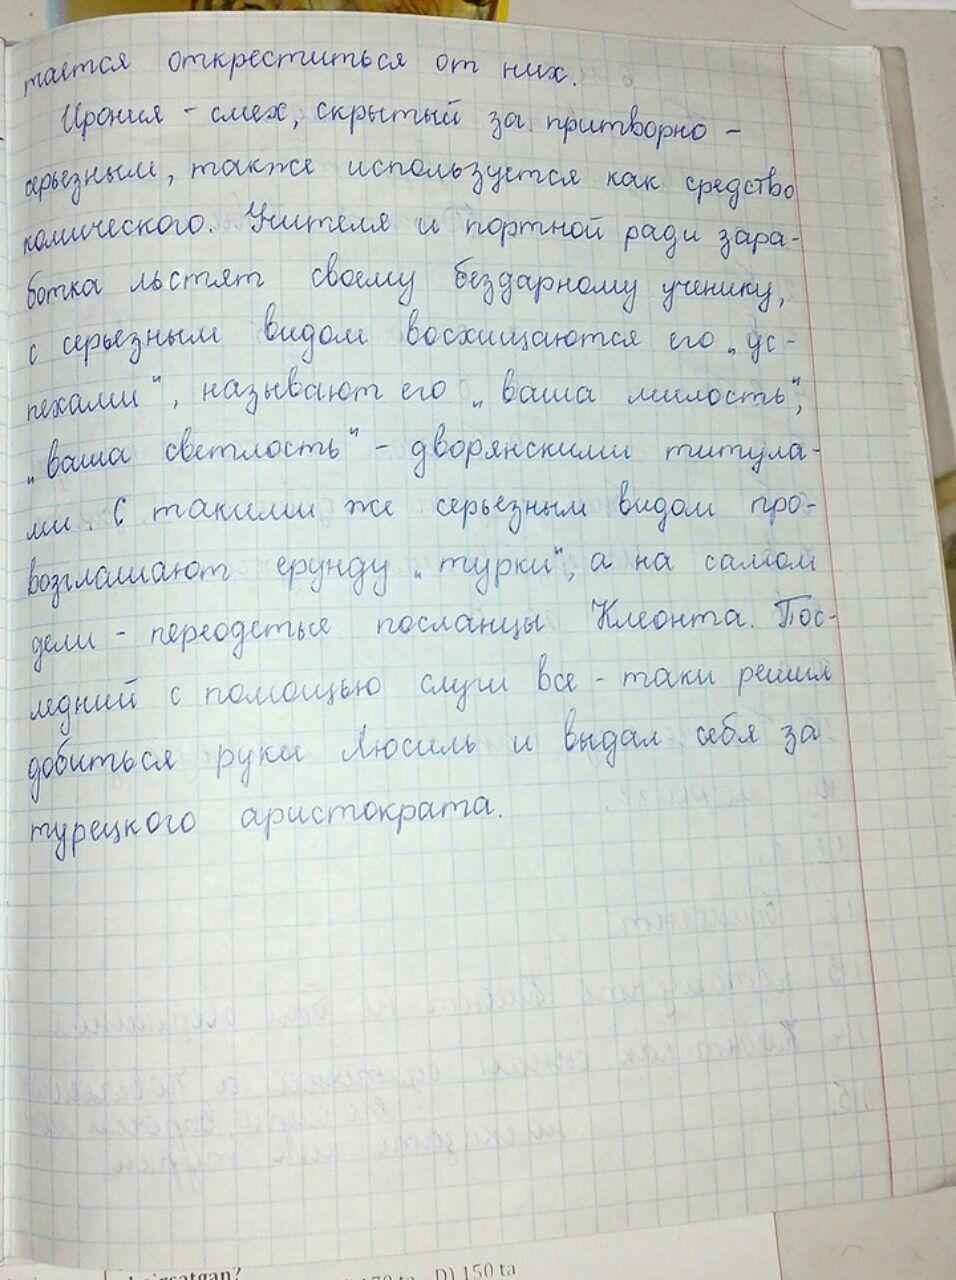 тается откреститься от них.
Ирония - смех, скрытый за притворно -
серьезным, также используется как средство
комического. Учителя и портной ради зара-
ботка льстят своему бездарному ученику,
с серьезным видом восхищаются его „ус-
пехами“, называют его „ваша милость“,
„ваша светлость“ - дворянскими титула-
ми. С такими же серьезным видом про-
возглашают ерунду „турки“, а на самом
дели - переодетые посланцы Клеонта. Пос-
ледний с помощью слуги все - таки решил
добиться руки Люсиль и выдал себя за
турецкого аристократа.
D) 150 ta